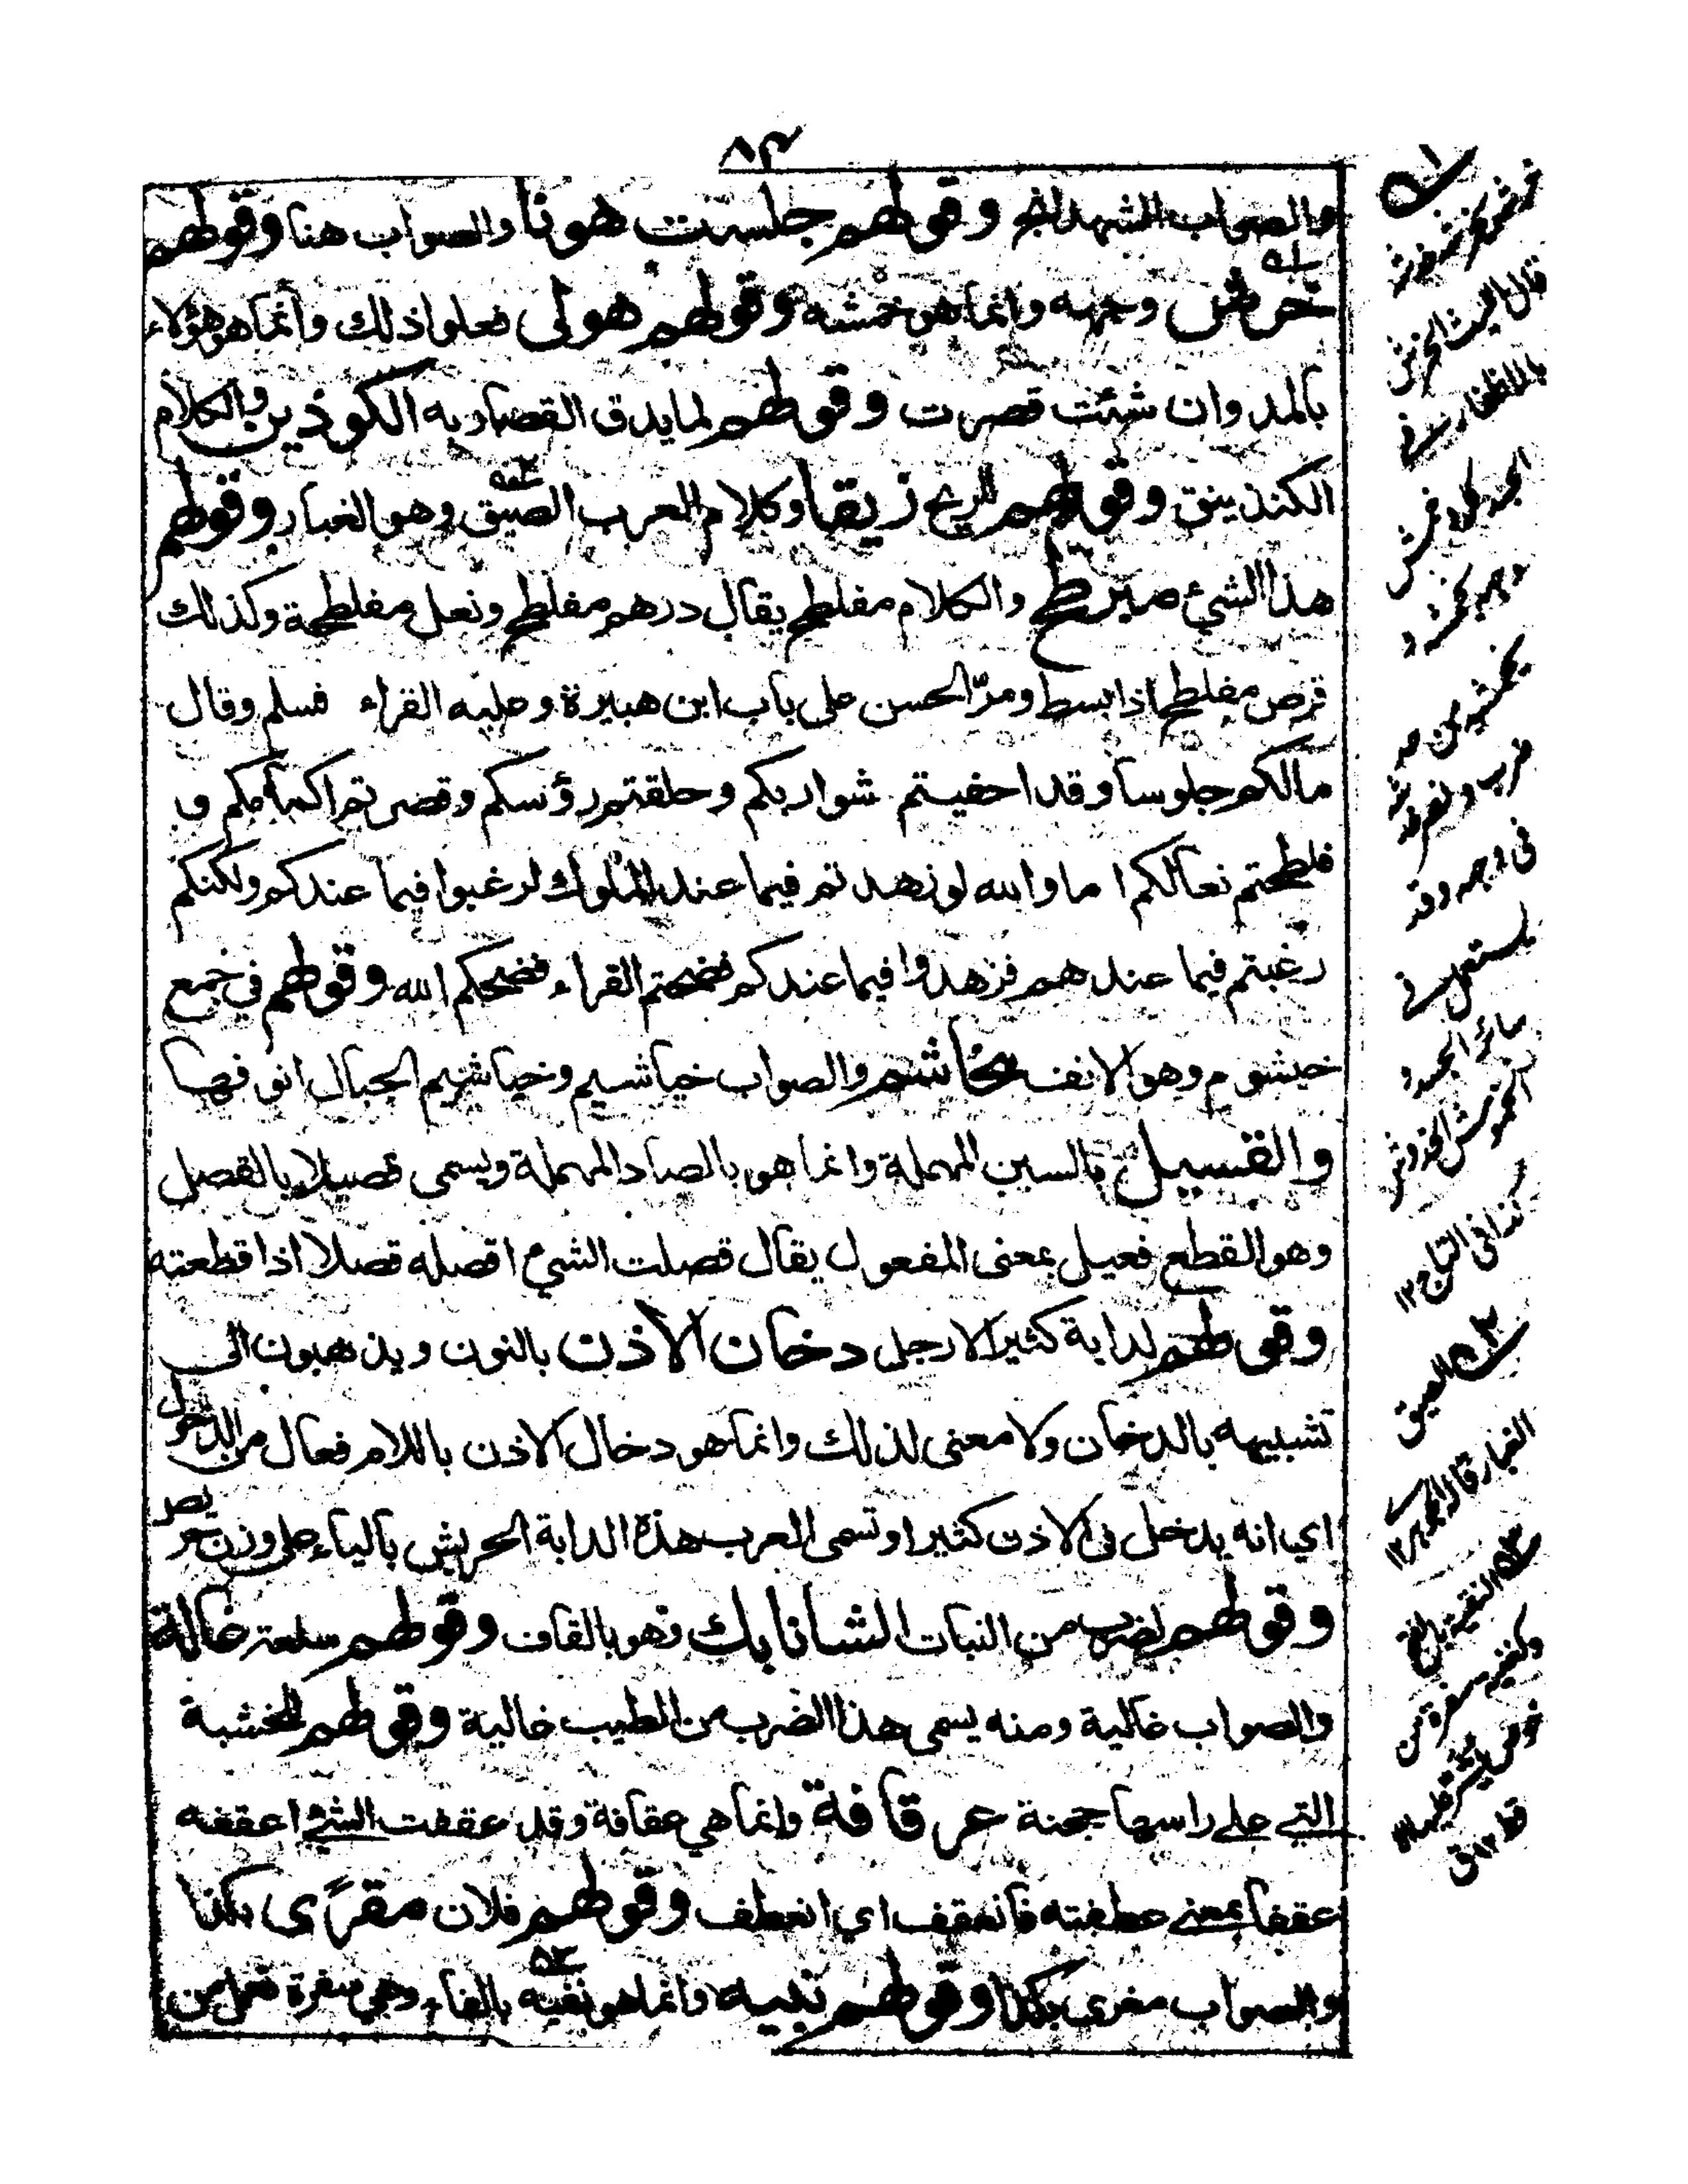 ٨٣
والصواب الشهدانج وقولهم جلست هونا والصواب هنا وقولهم
خرمش وجهه وانما هو خمشه وقولهم هولى فعلوا ذلك وأنما هو هؤلاء
بالمد وان شئت قصرت وقولهم لما يدق القصار به الكوذين والكلام
الكذينق وقولهم للريح زيقا وكلام العرب الصيق وهو الغبار وقولهم
هذا الشيء مبرطح والكلام مفلطح يقال درهم مفلطح ونعل مفلطحة وكذلك
قرص مفلطح اذا بسط ومرّ الحسن على باب ابن هبيرة وعليه القراء فسلم وقال
مالكم جلوسا وقد احفيتم شواربكم وحلقتم رؤسكم وقصرتم اكمامكم و
فلطحتم نعالكم اما والله لو زهدتم فيما عند الملوك لرغبوا فيما عندكم ولكنكم
رغبتم فيما عندهم فزهدوا فيما عندكم فضحتم القراء فضحكم الله وقولهم في جمع
خيشوم وهو الانف مخاشم والصواب خياشيم وخياشيم الجبال انوفها
والقسيل بالسين المهملة وانما هو بالصاد المهملة ويسمى قصيلا بالقصل
وهو القطع فعيل بمعنى المفعول يقال قصلت الشيء اقصله قصلا اذا قطعته
وقولهم لدابة كثير الارجل دخان الاذن بالنون ويذهبون الى
تشبيهه بالدخان ولا معنى لذلك وانما هو دخال الاذن باللام فعال من الدخول
اي انه يدخل في الاذن كثيرا وتسمى العرب هذه الدابة الحريش بالياء على وزن حرير
وقولهم لضرب من النبات الشانابك وهو بالقاف وقولهم سلعة غالة
والصواب غالية ومنه يسمى هذا الضرب من الطيب غالية وقولهم للخشبة
التي على راسها حجنة عرقافة وانما هي عقافة وقد عقفت الشئ اعقفه
عقفا بمعنى عطفته فانعقف اي انعطف وقولهم فلان مقرّى بكذا
والصواب مغرى بكذا وقولهم نبيه وانما هو نفيه بالفاء وهي سفرة تعمل من
٥١
قال الليث الخمش
بالاظفار في
الجسد كله وخمش
وجهه يخمشه و
يخمشه من حد
ضرب ونصر خدشه
فى وجهه وقد
يستعمل في
سائر الجسد و
الخموش الخدوش
كذا في التاج ١٢
٥٢ الصيق
الغبار قاله الجوهري ١٢
٥٣ النفية بالفتح
وكغنية سفرة من
خوص